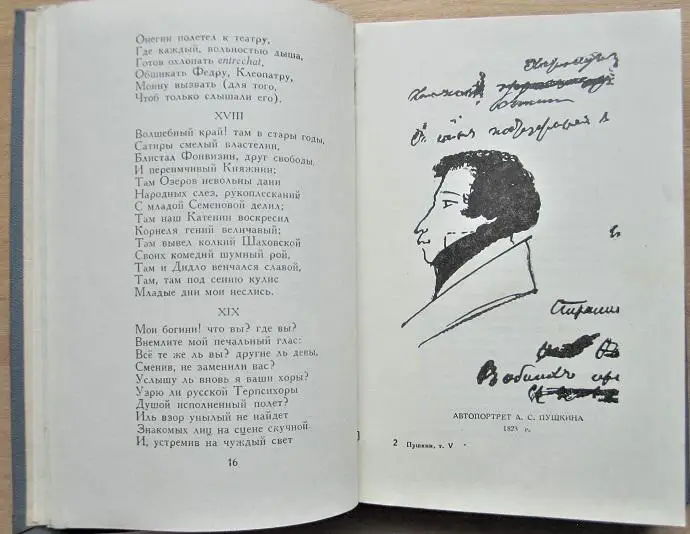 Онегин полетел к театру,
Где каждый, вольностью дыша,
Готов охлопать entrechat,
Обшикать Федру, Клеопатру,
Моину вызвать (для того,
Чтоб только слышали его).
XVIII
Волшебный край! там в стары годы,
Сатиры смелый властелин,
Блистал Фонвизин, друг свободы,
И переимчивый Княжнин;
Там Озеров невольны дани
Народных слез, рукоплесканий
С младой Семеновой делил;
Там наш Катенин воскресил
Корнеля гений величавый;
Там вывел колкий Шаховской
Своих комедий шумный рой,
Там и Дидло венчался славой,
Там, там под сению кулис
Младые дни мои неслись.
XIX
Мои богини! что вы? где вы?
Внемлите мой печальный глас:
Всё те же ль вы? другие ль девы,
Сменив, не заменили вас?
Услышу ль вновь я ваши хоры?
Узрю ли русской Терпсихоры
Душой исполненный полет?
Иль взор унылый не найдет
Знакомых лиц на сцене скучной,
И, устремив на чуждый свет
16
АВТОПОРТРЕТ А. С. ПУШКИНА
1823 г.
2 Пушкин, т. V